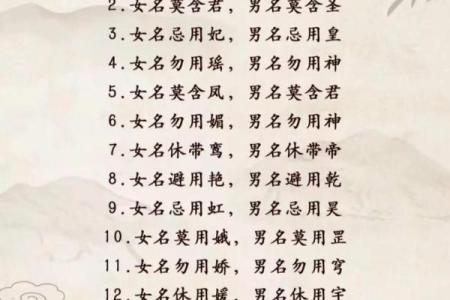 2.女名莫含君，男名莫含圣
3.女名忌用妃，男名忌用皇
4.女名勿用瑶，男名勿用神
5.女名莫含凤，男名莫含君
6.女名勿用媚，男名勿用神
7.女名休带鸾，男名休带帝
8.女名避用艳，男名避用乾
9.女名忌用虹，男名忌用昊
10.女名莫用娥，男名莫用罡
11.女名勿用娇，男名勿用穹
12.女名休用媛，男名休用宇